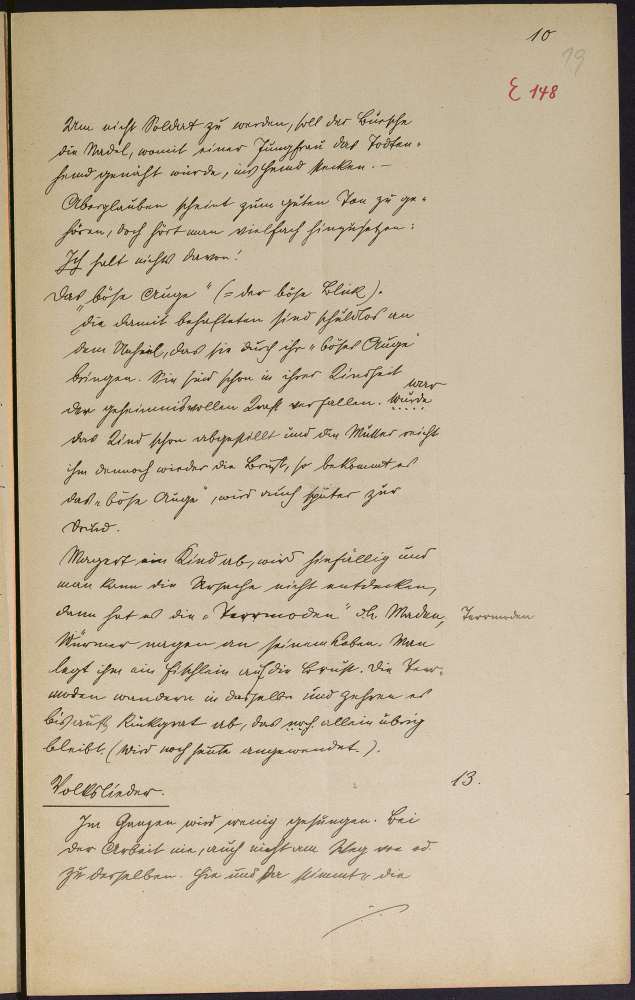 10
19
E 148
Um nicht Soldat zu werden, soll der Bursche
die Nadel, womit einer Jungfrau das Todten-
hemd genäht wurde, ins Hemd stecken. -
Aberglauben scheint zum guten Ton zu ge-
hören, doch hört man vielfach hinzusetzen:
Ich halt nichts davon!
Das "böse Auge" (= der böse Blick).
Die damit behafteten sind schuldlos an
dem Unheil, das sie durch ihr "böses Auge"
bringen. Sie sind schon in ihrer Kindheit
der geheimnisvollen Kraft verfallen. Wurde
war
das Kind schon abgestillt und die Mutter reicht
ihm dennoch wieder die Brust, so bekommt es
das "böse Auge", wird auch später zur
Drud.
Magert ein Kind ab, wird hinfällig und
man kann die Ursache nicht entdecken,
dann hat es die "Terrmoden" d.h. Maden,
Terrmoden
Würmer nagen an seinem Leben. Man
legt ihm ein Fischlein auf die Brust. Die Terr-
moden wandern in dasselbe und zehren es
bis aufs Rückgrat ab, das noch allein übrig
bleibt. (Wird noch heute angewendet.).
Volkslieder.
13.
Im Ganzen wird wenig gesungen. Bei
der Arbeit nie, auch nicht am Weg von od.
zu derselben. Hie und da stimmt die